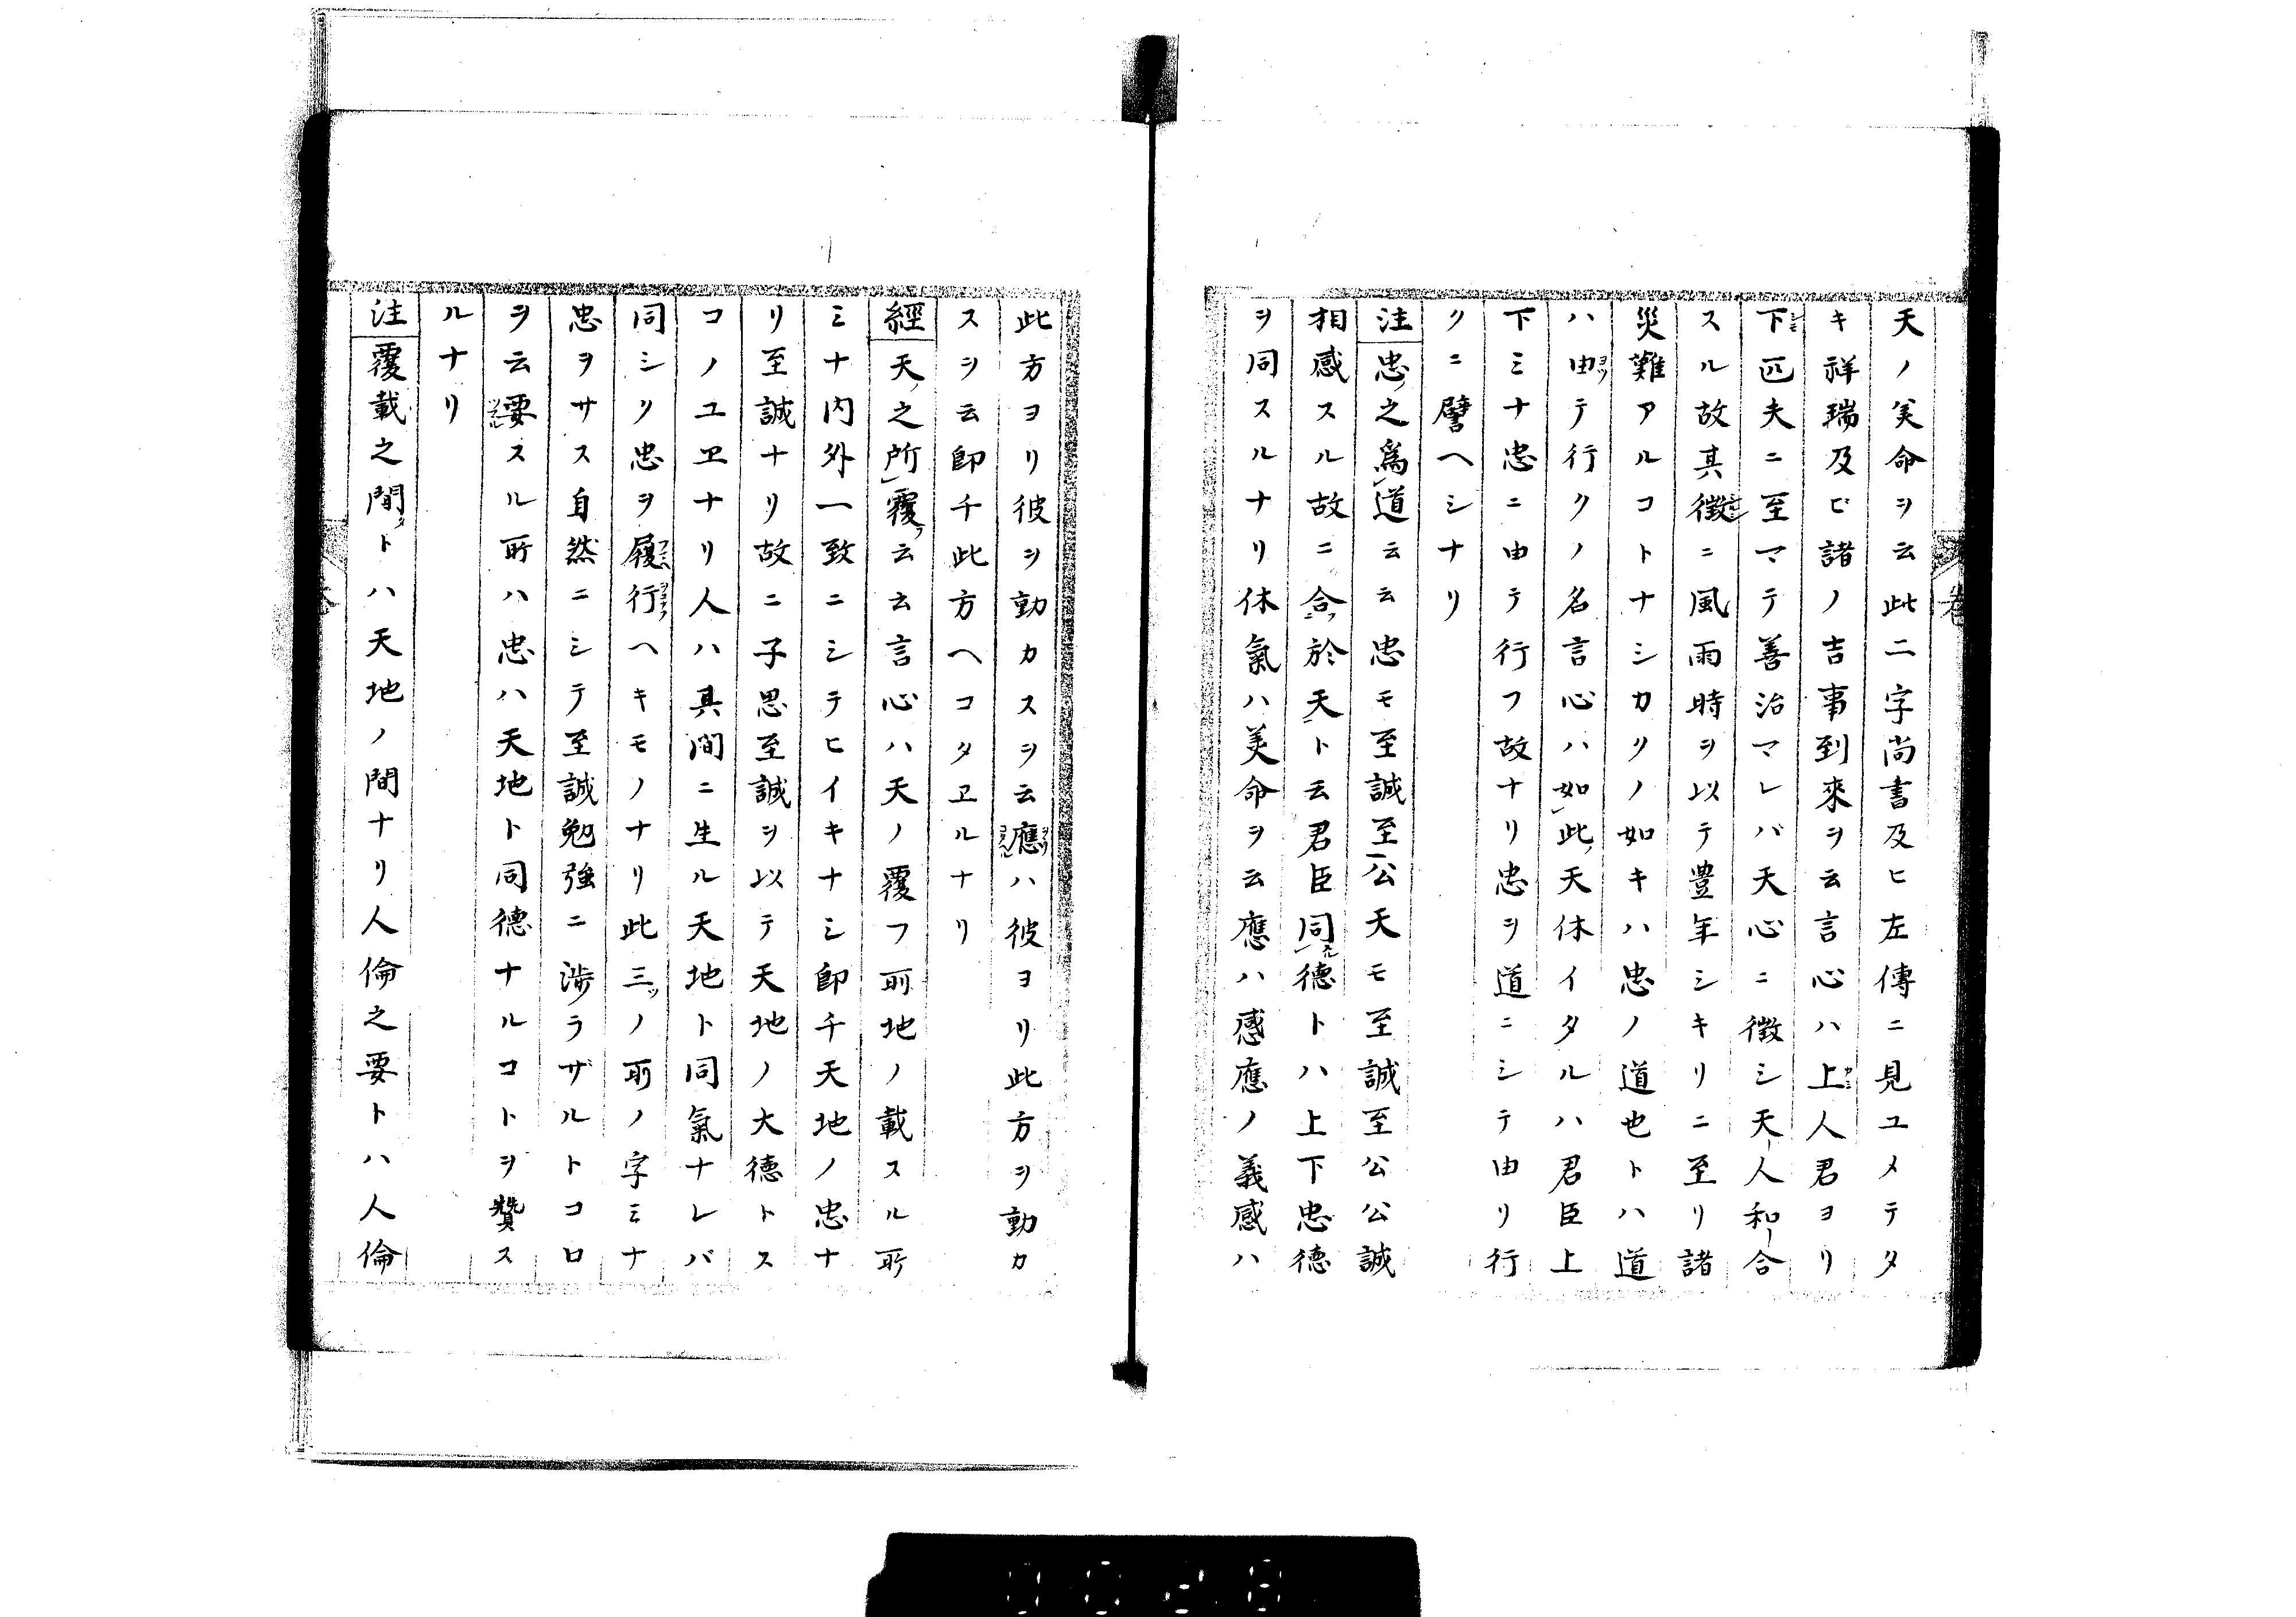 天ノ美命ヲ云此二字尚書及ヒ左傳ニ見ユメテタ
キ祥瑞及ビ諸ノ吉事到來ヲ云言心ハ上人君ヨリ
下匹夫ニ至マテ善治マレバ天心ニ徴シ天人和合
スル故其徴ニ風雨時ヲ以テ豊年シキリニ至リ諸
災難アルコトナシカクノ如キハ忠ノ道也トハ道
ハ由テ行クノ名言心ハ如此天休イタルハ君臣上
下ミナ忠ニ由テ行フ故ナリ忠ヲ道ニシテ由リ行
クニ譬ヘシナリ
注忠之爲道云云忠モ至誠至公天モ至誠至公公誠
相感スル故ニ合於天ト云君臣同德トハ上下忠德
ヲ同スルナリ休氣ハ美命ヲ云應ハ感應ノ義感ハ
此方ヨリ彼ヲ動カスヲ云應ハ彼ヨリ此方ヲ動カ
スヲ云即チ此方ヘコタヱルナリ
經天之所覆云云言心ハ天ノ覆フ所地ノ載スル所
ミナ内外一致ニシテヒイキナシ即チ天地ノ忠ナ
リ至誠ナリ故ニ子思至誠ヲ以テ天地ノ大德トス
コノユヱナリ人ハ其間ニ生ル天地ト同氣ナレバ
同シク忠ヲ履行ヘキモノナリ此三ツノ所ノ字ミナ
忠ヲサス自然ニシテ至誠勉強ニ渉ラザルトコロ
ヲ云要スル所ハ忠ハ天地ト同德ナルコトヲ贊ス
ルナリ
注覆載之間トハ天地ノ間ナリ人倫之要トハ人倫